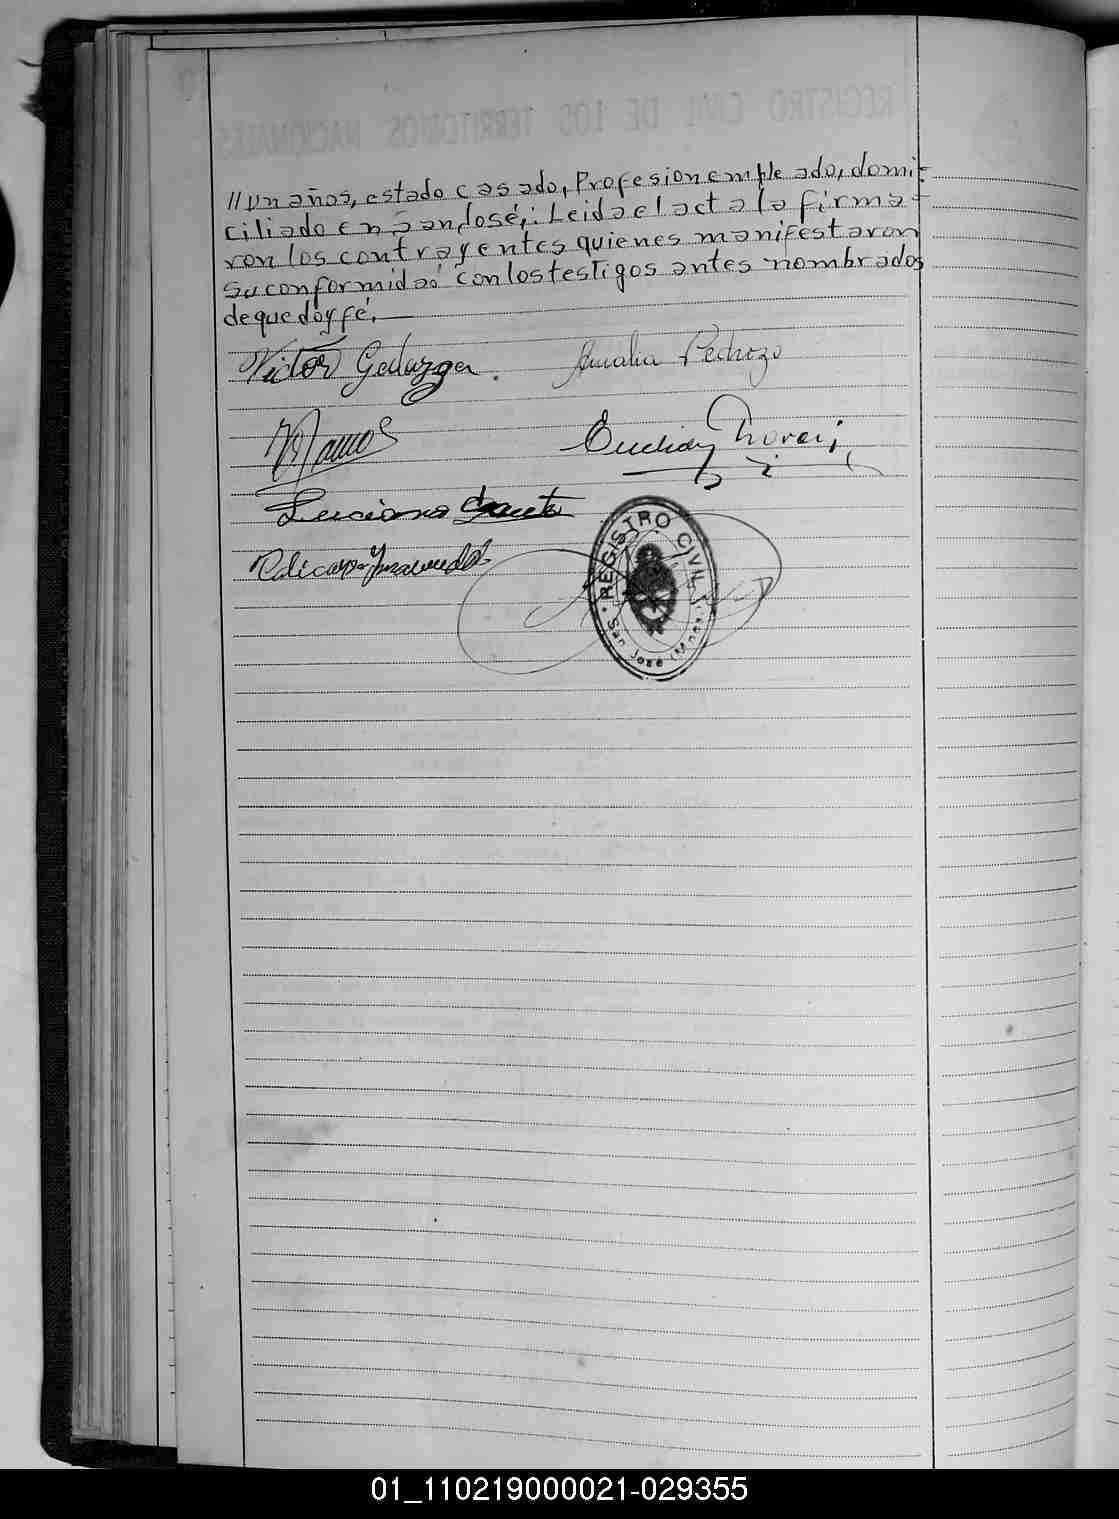 REGISTRO CIVIL DE LOS TERRITORIOS NACIONALES
//un años, estado casado, Profesion empleado, domi=
ciliado en San José,: Leida el acta la firma=
ron los contrayentes quienes manifestaron
su conformidad con los testigos antes nombrados
de que doy fé.
Victor Galarza. Amalia Pedrozo
Ramos
Luciano
REGISTRO CIVIL
San José
01_110219000021-029355